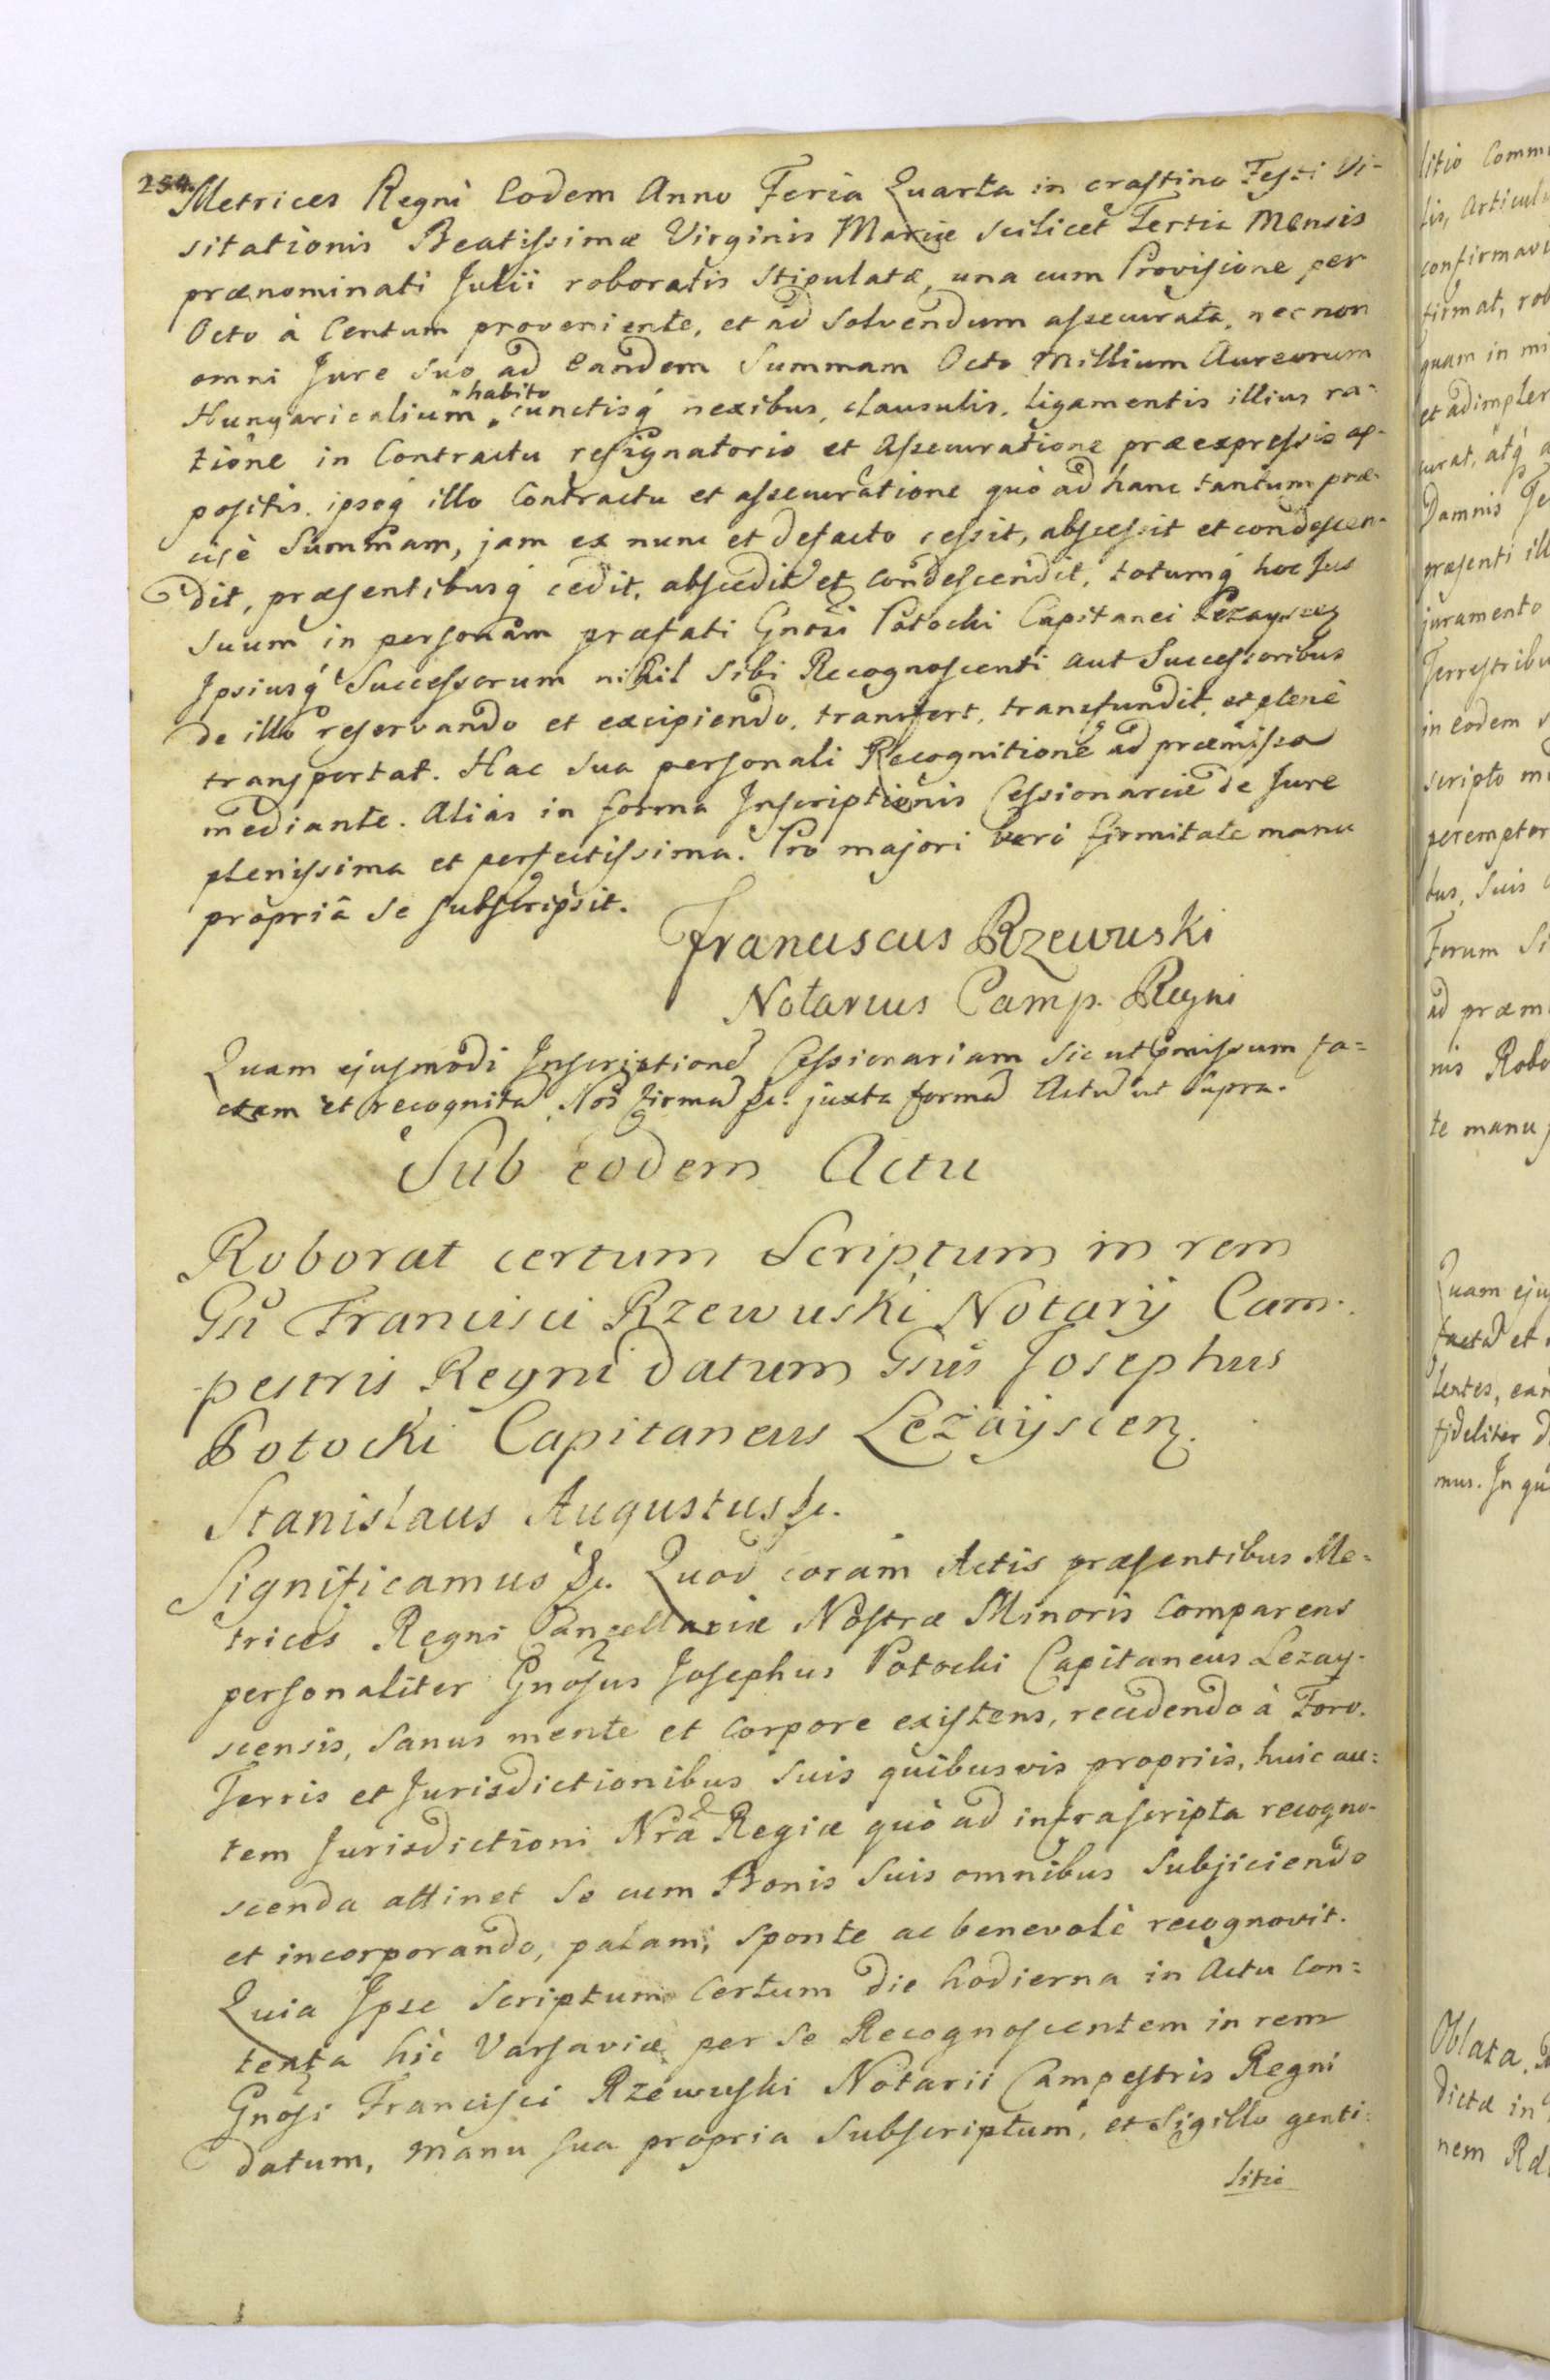 254.
Metrices Regni Eodem Anno Feria Quarta in crastino Festi Vi-
sitationis Beatissimæ Virginis Mariæ scilicet Tertia Mensis
prænominati Julii roboratis stipulatæ, una cum Provisione per
Octo à Centum proveniente, et ad solvendum assecurata, nec non
omni Jure suo ad eandem Summam Octo Millium Aureorum
habito
Hungaricalium, cunctisq́ nexibus, clausulis, ligamentis illius ra-
tione in Contractu resignatorio et Assecuratione præexpressis ap-
positis, ipsoq́ illo Contractu et assecuratione quò ad hanc tantum præ-
cisè Summam, jam ex nunc et defacto cessit, abscessit et condescen-
dit, præsentibusq́ cedit, abscedit et condescendit, totumq́ hoc Jus
suum in personam præfati Gnosi Potocki Capitanei Lezayscen
Ipsiusq́ Successorum nihil sibi Recognoscenti aut Successoribus
de illo reservando et excipiendo, transfert, transfundit, et plenè
transportat. Hac sua personali Recognitione ad præmissa
mediante. Aliàs in forma Inscriptionis Cessionariæ de Jure
plenissima et perfectissima. Pro majori verò firmitate manu
propriâ se subscripsit.
Franciscus Rzewuski
Notarius Camp. Regni
Quam ejusmodi Inscriptione Cessionariam sic ut pmissum fa=
ctam et recognita Nos firma &c. juxta forma Actu ut supra.
Sub eodem Actu
Roborat certum Scriptum in rem
Gsi Francisci Rzewuski Notarij Cam-
pestris Regni datum Gsus Josephus
Potocki Capitaneus Leżayscen.
Stanislaus Augustus &c.
Significamus &c. Quod coram Actis præsentibus Me=
trices Regni Cancellariæ Nostræ Minoris Comparens
personaliter Gnosus Josephus Potocki Capitaneus Lezay-
scensis, sanus mente et corpore existens, recedendo à Foro.
Terris et Jurisdictionibus suis quibusvis propriis, huic au=
tem Jurisdictioni Nræ Regiæ quò ad infrascripta recogno-
scenda attinet se cum Bonis suis omnibus subjiciendo
et incorporando, palam, sponte ac benevolè recognovit.
Quia Ipse Scriptum Certum die hodierna in Actu Con=
tenta hic Varsaviæ per se Recognoscentem in rem
Gnosi Francisci Rzewuski Notarii Campestris Regni
datum, manu sua propria subscriptum, et Sigillo genti=
litio
litio Comm
lis, Articul
confirmav
firmat, rob
quam in mi
et adimpler
curat, atq́
Damnis Te
præsenti ill
juramento
Terrestribu
in eodem
scripto
perempter
tus, suis
Forum
ad præm
nis Robo
te manu
Quam eju
facta et
lentes, ean
fideliter
mus. In qu
Oblata
dictæ in
nem